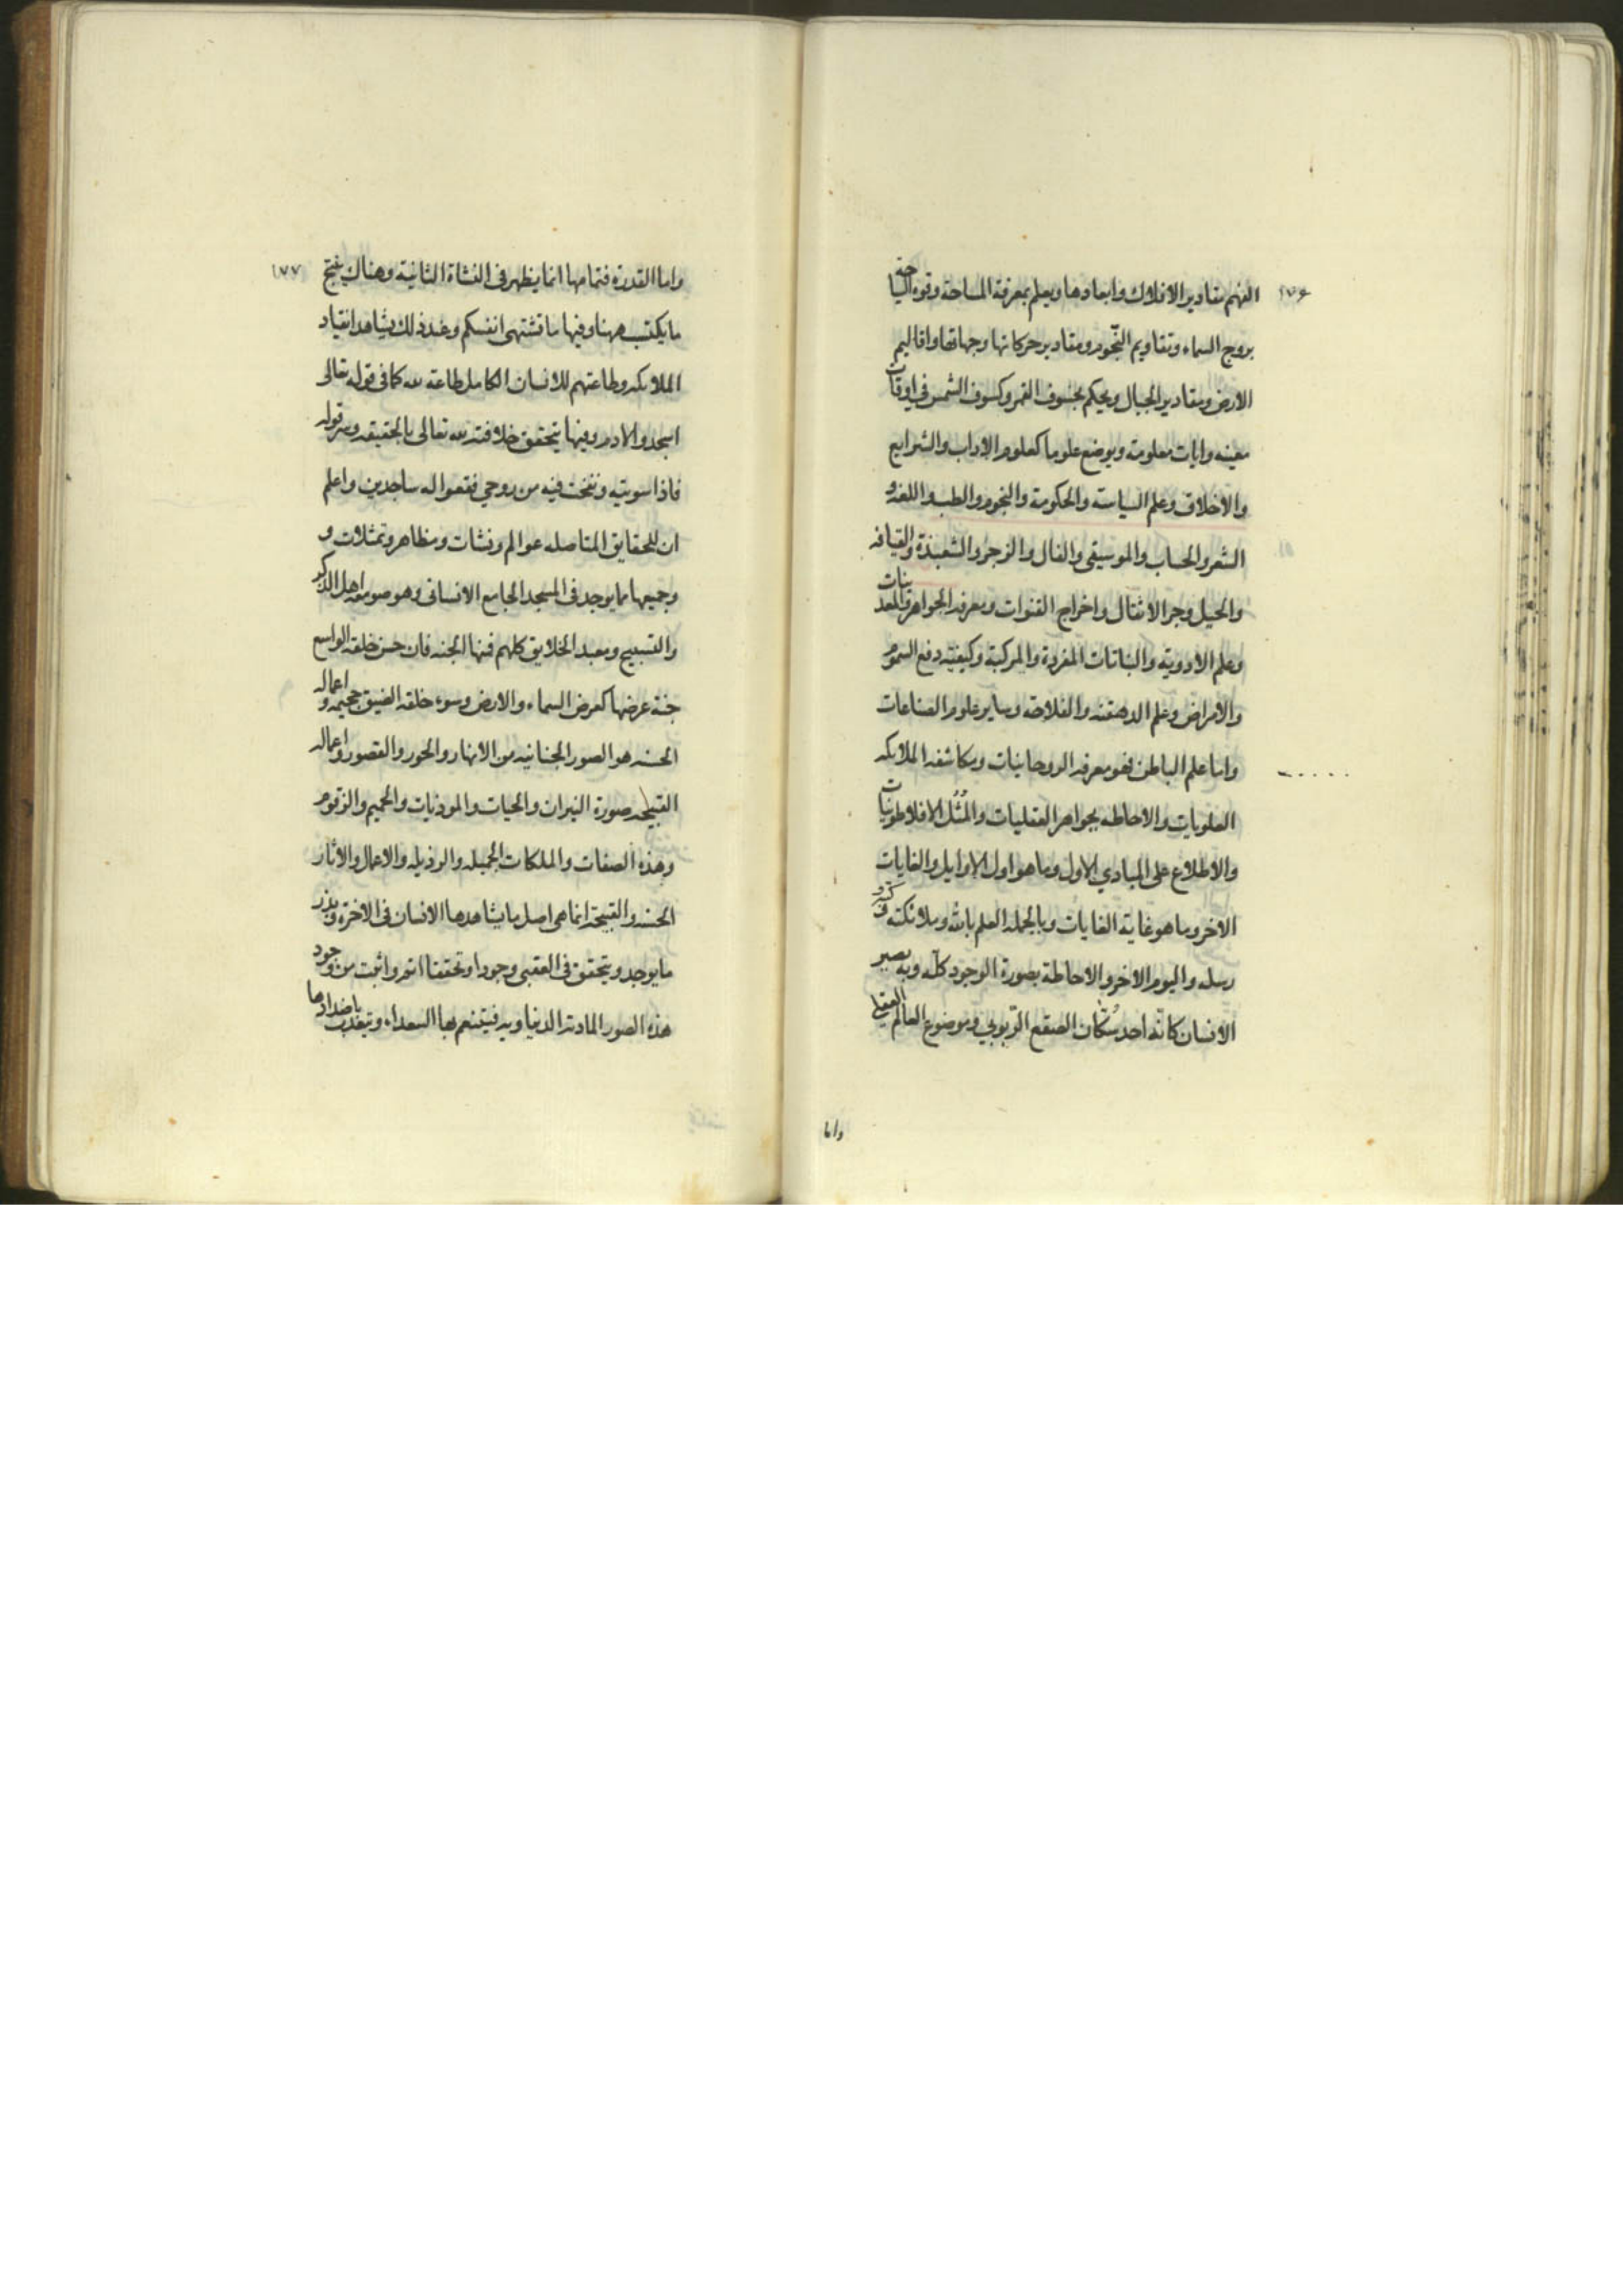 ١٧٦
الفهم مقادير الافلاك وابعادها ويعلم بمعرفة المساحة وقوه السياحة
بروج السماء وتقاويم النّجوم ومقادير حركاتها وجهاتها واقاليم
الارض ومقادير الجبال ويحكم بخسوف القمر وكسوف الشمس في اوقات
معينه وايات معلومة ويوضع علوما كعلوم الاداب والشرايع
والاخلاق وعلم السياسة والحكومة والنجوم والطب واللغه و
الشعر والحساب والموسيقى والفال والزجر والشعبذة والقيافه
والحيل وجر الاثقال واخراج القنوات ومعرفه الجواهر والمعدنيات
وعلم الادويه والنباتات المفردة والمركبة وكيفيه دفع السموم
والامراض وعلم الدهقنه والفلاحه وساير علوم الصناعات
واما علم الباطن فهو معرفه الروحانيات ومكاشفه الملائكه
العلويات والاحاطه بجواهر العقليات والمُثُل الافلاطونيات
والاطلاع على المبادي الاول وما هو اول الاوايل والغايات
الاخر وما هو غاية الغايات وبالجمله العلم بالله وملائكته وكتبه و
رسله واليوم الاخر والاحاطة بصورة الوجود كلّه وبه يصير
الانسان كانّه احد سُكّان الصقع الرّبوبي وموضوع العالم العقلي
واما
١٧٧
واما القدرة فتمامها انما يظهر في النشاة الثانية وهناك ينتج
ما يكتب ههنا وفيها ما تشتهى انفسكم وعند ذلك يشاهد انقياد
الملائكه وطاعتهم للانسان الكامل طاعة لله كما في قوله تعالى
اسجدوا لادم وفيها يتحقق خلافته لله تعالى بالحقيقه وسر قوله
فاذا سويته ونفخت فيه من روحي فقعوا له ساجدين واعلم
ان للحقايق المتاصله عوالم ونشات ومظاهر وتمثلات و
وجميعها مما يوجد في المسجد الجامع الانسانى وهو صومعه اهل الذكر
والتسبيح ومعبد الخلايق كلهم فمنها الجنه فان حسن خلقه الواسع
جنة عرضها كعرض السماء والارض وسوء خلقه الضيق جحيمه و اعماله
الحسنه هو الصور الجنانيه من الانهار والحور والقصور واعماله
القبيحه صورة النيران والحيات والموذيات والحميم والزقوم
وهذه الصفات والملكات الجميله والرذيله والاعمال والاثار
الحسنه والقبيحة انما هي اصل ما يشاهدها الانسان في الاخرة وبذر
ما يوجد ويتحقق في العقبى وجودا وتحققا اتم واثبت من وجود
هذه الصور المادته الدنياويه فيتنعم بها السعداء ويتعذب باضدادها